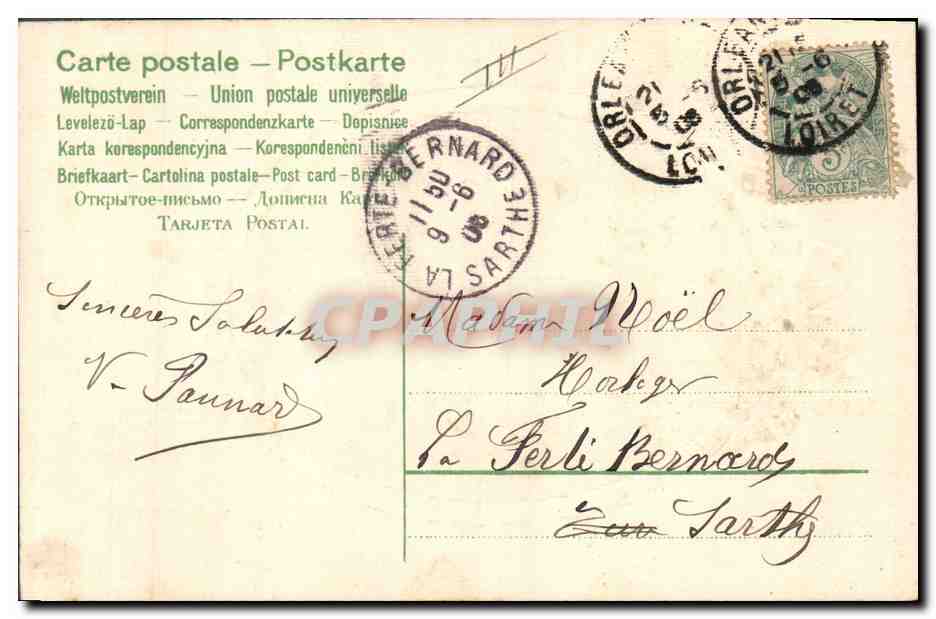 Carte postale — Postkarte
Weltpostverein - Union postale universelle
Levelező-Lap — Correspondenzkarte — Dopisnice
Karta korespondencyjna — Korespondenční lístek
Briefkaart - Cartolina postale - Post card - Brefkort
Открытое-письмо — Дописна Карта
TARJETA POSTAL
LA FERTE-BERNARD SARTHE
11 50
9 -6
08
ORLEANS
21
8 -6
08
LOIRET
ORLEANS
21
8 -6
08
LOIRET
5
POSTES
CPAPHIL
Sincères Salutations
V. Paunard
Madame Noël
Horloger
La Ferté Bernard
Sarthe